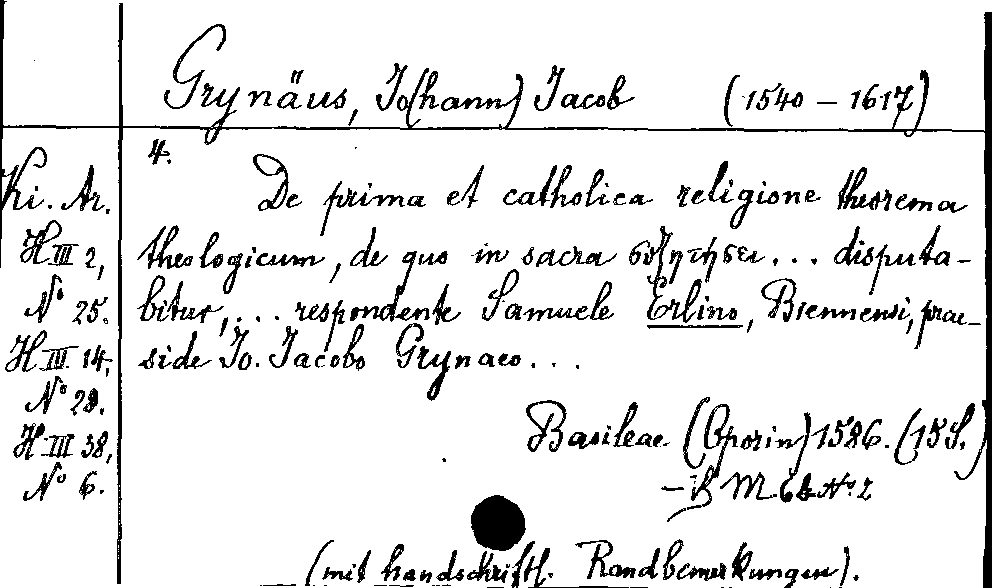 Grynäus, Jo(hann) Jacob (1540 – 1617)
4.
Ki. Ar.
H III 2,
N° 25.
H III 14,
N° 29.
H III 38,
N° 6.
De prima et catholica religione theorema
theologicum, de quo in sacra συζητήσει... disputa-
bitur,... respondente Samuele Erlino, Biennensi, prae-
side Jo. Jacobo Grynaeo...
Basileae (Oporin) 1586. (15 S.)
M 64 N° 2
(mit handschriftl. Randbemerkungen).